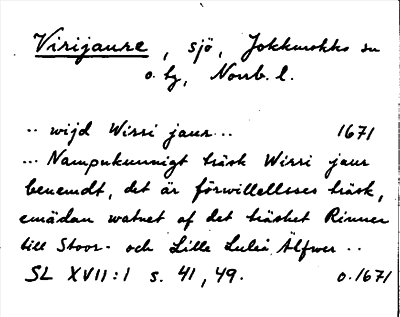 Virijaure, sjö, Jokkmokks sn
o. tg, Norrb. l.
.. wijd Wirri jaur... 1671
... Nampnkunnigt träsk Wirri jaur
benemdt, det är förwillellsses träsk,
emädan watnet af det träsket Rinner
till Stoor- och Lille Luleå Älfwer ..
SL XVII:1 s. 41, 49. o. 1671